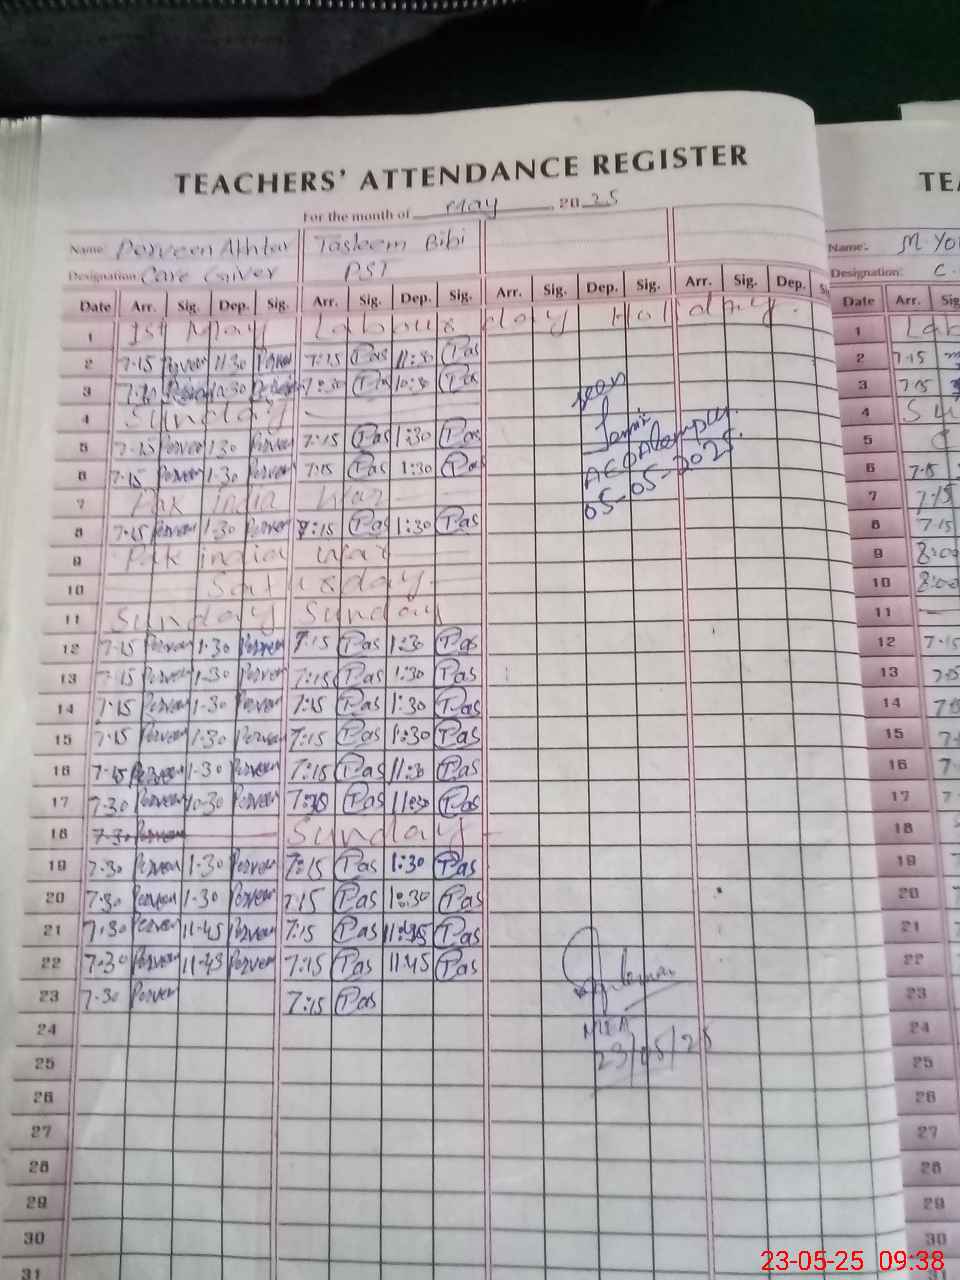 TEACHERS' ATTENDANCE REGISTER
TEA
For the month of May 2025
Name: Perveen Akhtar Tasleem Bibi
Name: M. You
Designation: Care Caiver PST
Designation: C.
Date Arr. Sig. Dep. Sig. Arr. Sig. Dep. Sig. Arr. Sig. Dep. Sig. Arr. Sig. Dep. Si
Date Arr. Sig
1 1st May Labour day Holiday.
1 Lab
2 7-15 Perveen 11-30 Perveen 7:15 Pas 11:30 Pas
2 7-15
3 Perveen 10-30 Perveen 7:30 Pas 10:30 Pas
3 7-15
4 Sunday
4 Su
5 7-15 Perveen 1-30 Perveen 7:15 Pas 1:30 Pas
5
6 7-15 Perveen 1-30 Perveen 7:15 Pas 1:30 Pas
6 7-15
7 Pak india War
7 7-15
8 7-15 Perveen 1-30 Perveen 7:15 Pas 1:30 Pas
8 7-15
9 Pak india War
9 8:00
10 Saturday
10 8:00
11 Sunday Sunday
11
seen
AEO
05-05-2025.
12 7-15 Perveen 1-30 Perveen 7:15 Pas 1:30 Pas
12 7-15
13 7-15 Perveen 1-30 Perveen 7:15 Pas 1:30 Pas
13 7-15
14 7-15 Perveen 1-30 Perveen 7:15 Pas 1:30 Pas
14
15 7-15 Perveen 1-30 Perveen 7:15 Pas 1:30 Pas
15 7-
16 7-15 Perveen 1-30 Perveen 7:15 Pas 11:30 Pas
16 7-
17 7-30 Perveen 10-30 Perveen Pas 11:30 Pas
17 7
18 7-30 Perveen Sunday
18
19 7-30 Perveen 1-30 Perveen 7:15 Pas 1:30 Pas
19
20 7-30 Perveen 1-30 Perveen 7:15 Pas 1:30 Pas
20
21 7-30 Perveen 11-45 Perveen 7:15 Pas 11:45 Pas
21
22 7-30 Perveen 11-45 Perveen 7:15 Pas 11:45 Pas
22
23 7-30 Perveen 7:15 Pas
23
24
24
25
25
26
26
27
27
28
28
29
29
30
30
31
31
MEA
23/05/25
23-05-25 09:38